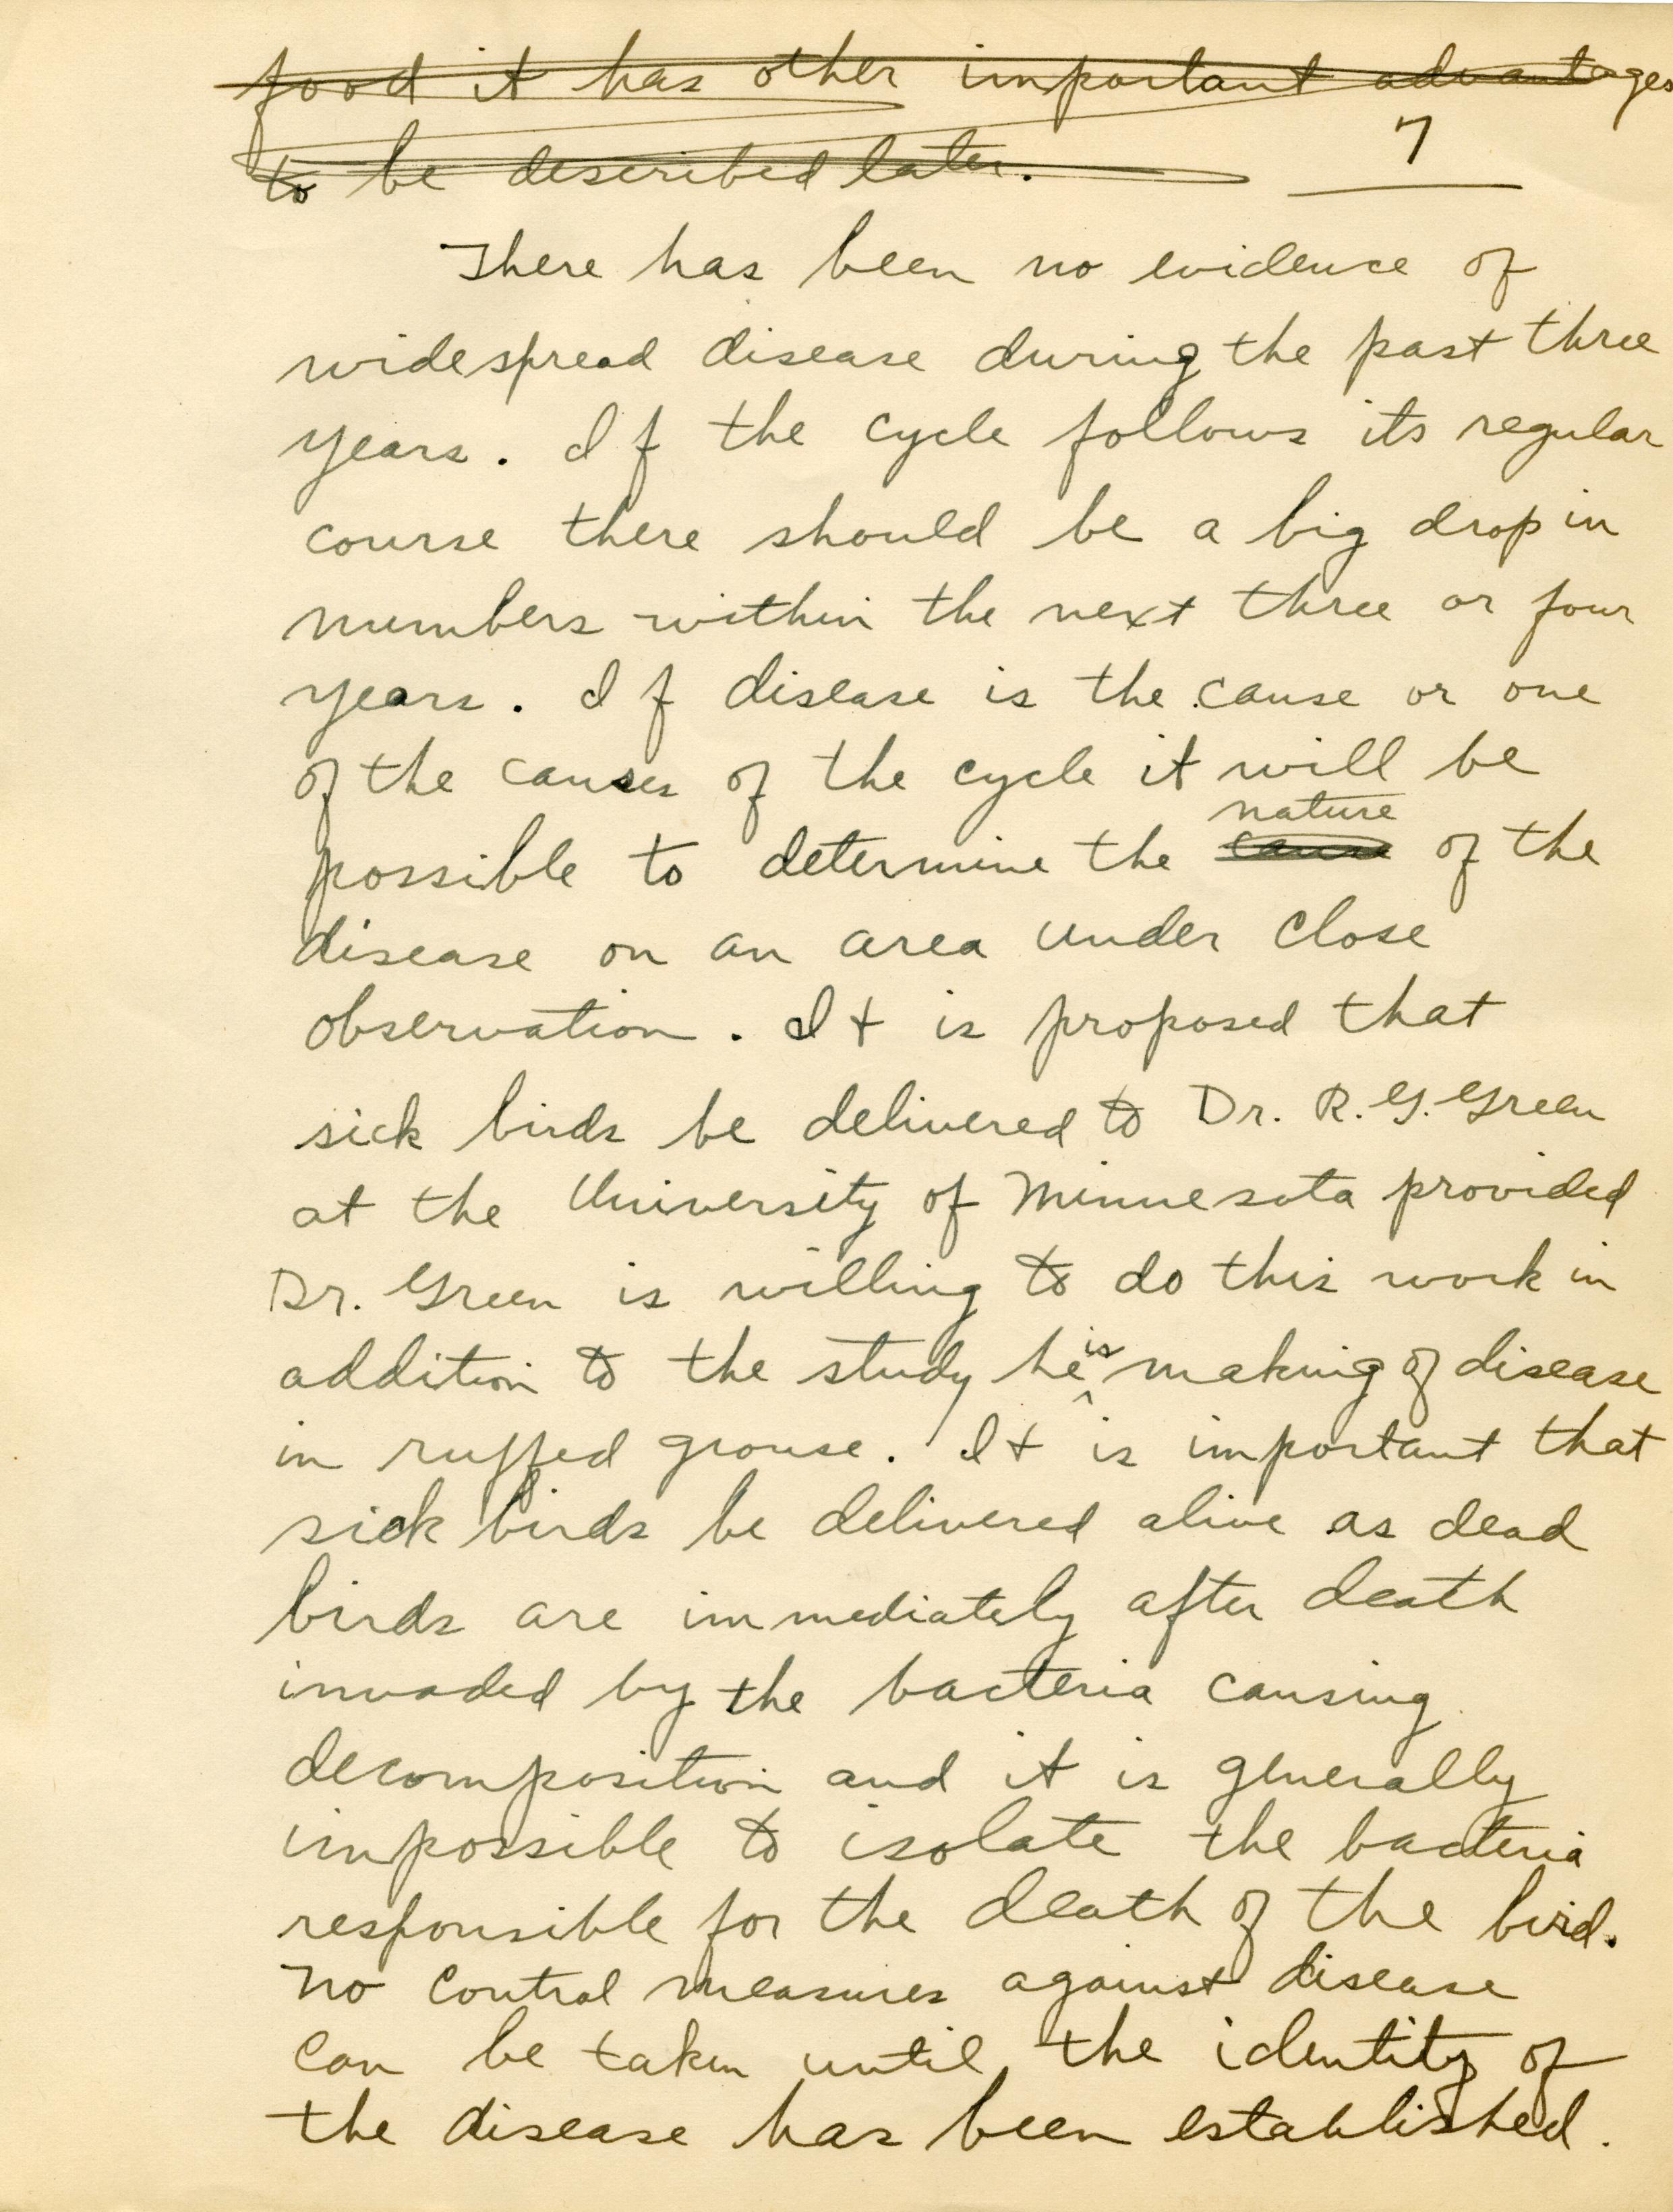 food it has other important advantages
7
to be described later.
There has been no evidence of
widespread disease during the past three
years. If the cycle follows its regular
course there should be a big drop in
numbers within the next three or four
years. If disease is the cause or one
of the causes of the cycle it will be
nature
possible to determine the cause of the
disease on an area under close
observation. It is proposed that
sick birds be delivered to Dr. R. G. Green
at the University of Minnesota provided
Dr. Green is willing to do this work in
addition to the study he is making of disease
in ruffed grouse. It is important that
sick birds be delivered alive as dead
birds are immediately after death
invaded by the bacteria causing
decomposition and it is generally
impossible to isolate the bacteria
responsible for the death of the bird.
No control measures against disease
can be taken until the identity of
the disease has been established.